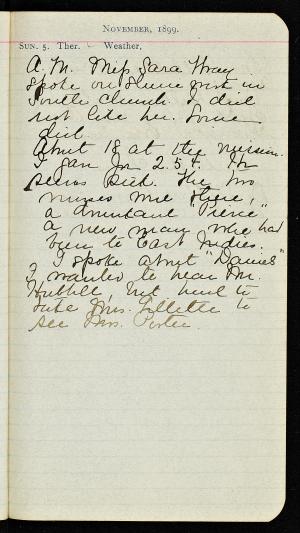 November, 1899.
Sun. 5. Ther. Weather.
A.M. Miss Sara Wray
spoke on Slum work in
South church. I did
not like her. Some
did.
About 18 at the mission.
I gave Jn 25¢. He
seems sick. The two
nurses were there,
a drunkard "Pierce"
a new man who had
been to East Indies.
I spoke about "Daniel"
I wanted to hear Mr.
Hubbell, but had to
take Mrs. Gillette to
see Mrs. Porter.